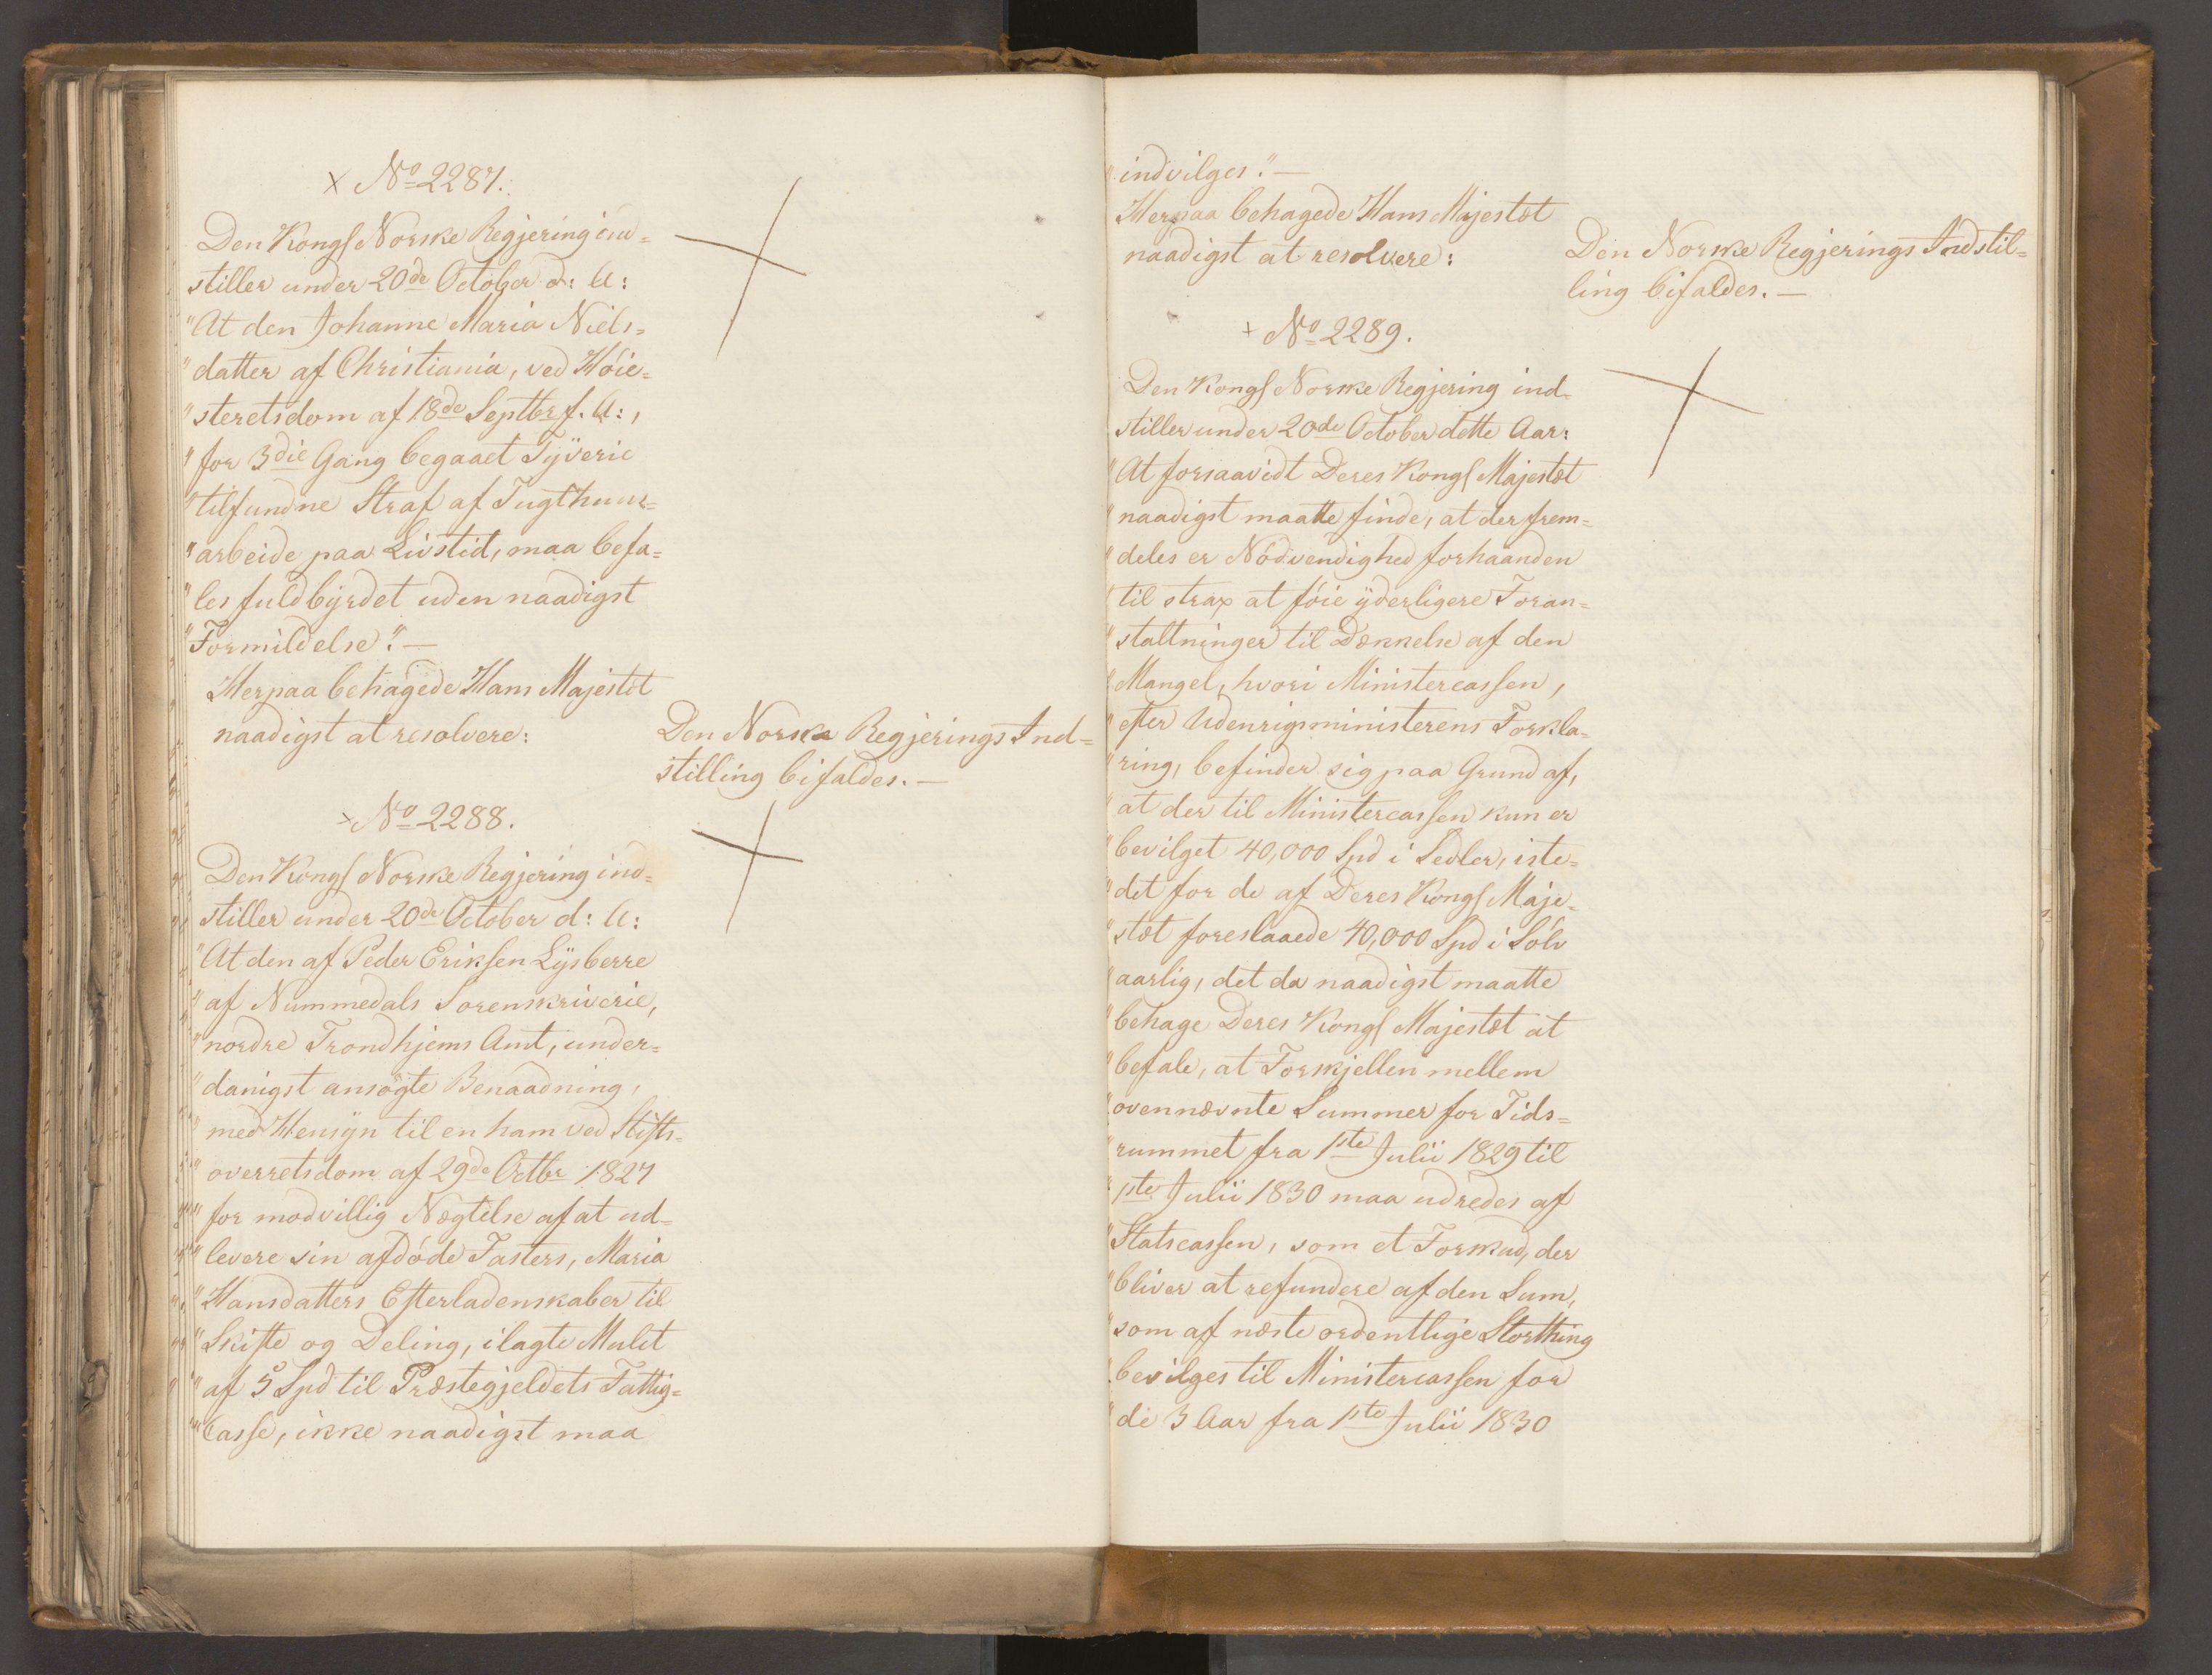 × No 2287.
Den Kongl Norske Regjering ind=
stiller under 20de October d: A:
"At den Johanne Maria Niels=
"datter af Christiania, ved Höie=
"steretsdom af 18de Septbr f. A:,
"for 3die Gang begaaet Tyverie
"tilfundne Straf af Tugthuus=
"arbeide paa Livstid, maa befa=
"les fuldbyrdet uden naadigst
"Formildelse". —
Herpaa behagede Hans Majestæt
naadigst at resolvere:
Den Norske Regjerings Ind=
stilling bifaldes. —
× No 2288.
Den Kongl Norske Regjering ind=
stiller under 20de October d: A:
"At den af Peder Eriksen Lysberre
"af Nummedals Sorenskriverie,
"nordre Trondhjems Amt, under=
"danigst ansögte Benaadning,
"med Hensyn til en ham ved Stifts=
"overretsdom af 29de Octbr 1827
"for modvillig Nægtelse af at ud=
"levere sin afdöde Fasters, Maria
"Hansdatters Efterladenskaber til
"Skifte og Deling, ilagte Mulct
"af 5 Spd til Præstegjeldets Fattig=
"casse, ikke naadigst maa
"indvilges". —
Herpaa behagede Hans Majestæt
naadigst at resolvere:
Den Norske Regjerings Indstil=
ling bifaldes. —
+ No 2289.
Den Kongl Norske Regjering ind=
stiller under 20de October dette Aar:
"At forsaavidt Deres Kongl Majestæt
"naadigst maatte finde, at der frem=
"deles er Nödvendighed forhaanden
"til strax at föie yderligere Foran=
"staltninger til Dækkelse af den
"Mangel, hvori Ministercassen,
"efter Udenrigsministerens Forkla=
"ring, befinder sig paa Grund af,
"at der til Ministercassen kun er
"bevilget 40,000 Spd i Sedler, iste=
"det for de af Deres Kongl Maje=
"stæt foreslaaede 40,000 Spd i Sölv
"aarlig, det da naadigst maatte
"behage Deres Kongl Majestæt at
"befale, at Forskjellen mellem
"ovennævnte Summer for Tids=
"rummet fra 1ste Julii 1829 til
"1ste Julii 1830 maa udredes af
"Statscassen, som et Forskud, der
"bliver at refundere af den Sum,
"som af næste ordentlige Storthing
"bevilges til Ministercassen for
"de 3 Aar fra 1ste Julii 1830